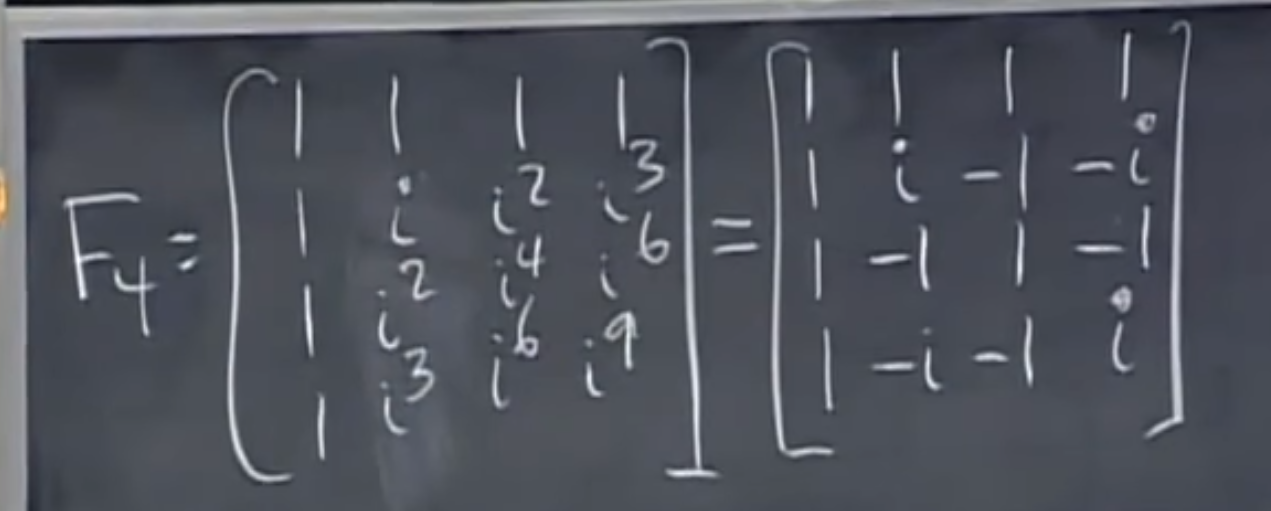 F₄ = [1 1 1 1; 1 i i² i³; 1 i² i⁴ i⁶; 1 i³ i⁶ i⁹] = [1 1 1 1; 1 i -1 -i; 1 -1 1 -1; 1 -i -1 i]